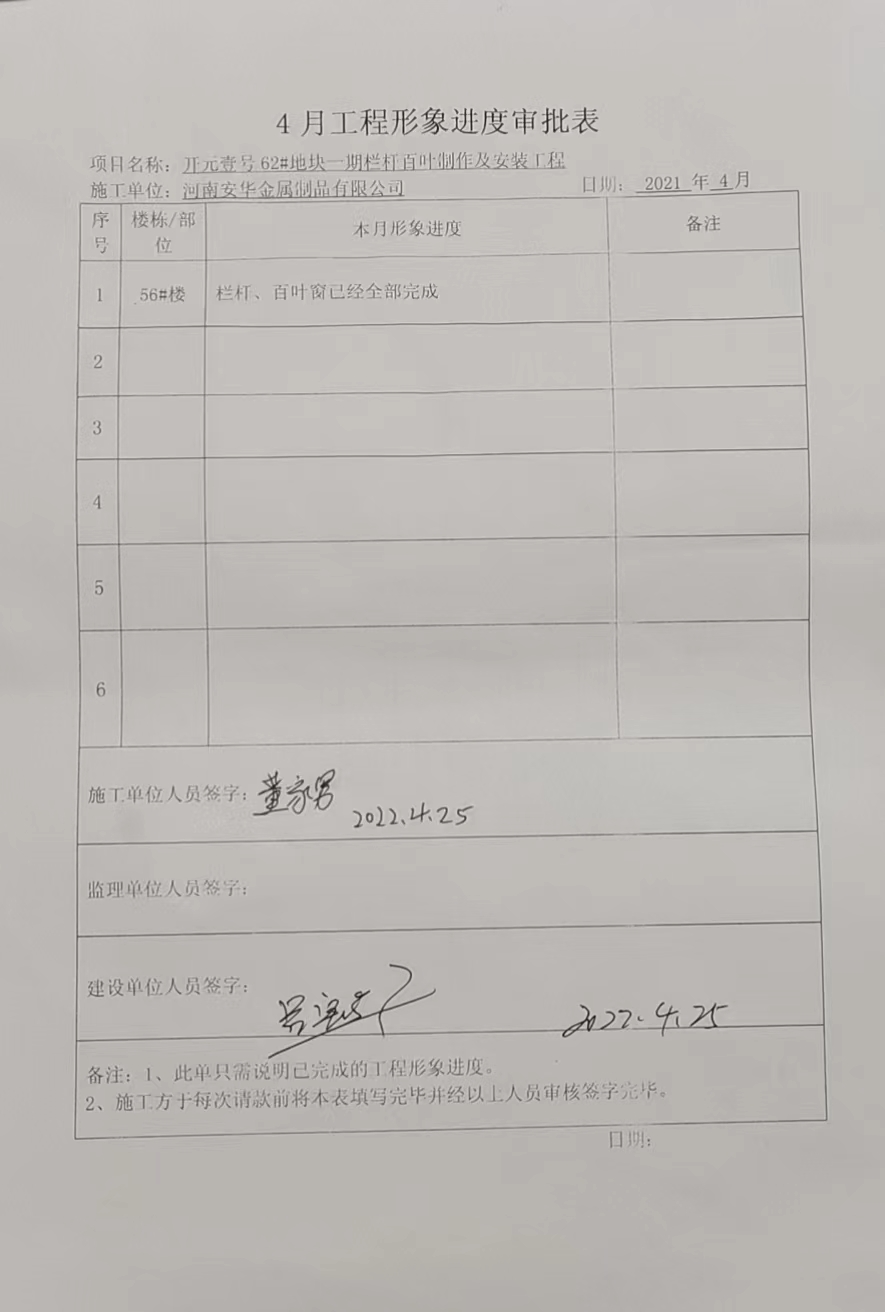 4月工程形象进度审批表
项目名称：开元壹号62#地块一期栏杆百叶制作及安装工程
施工单位：河南安华金属制品有限公司 日期： 2021 年 4 月
序号 楼栋/部位 本月形象进度 备注
1 56#楼 栏杆、百叶窗已经全部完成
2
3
4
5
6
施工单位人员签字：董家男
2022.4.25
监理单位人员签字：
建设单位人员签字：
2022.4.25
备注：1、此单只需说明已完成的工程形象进度。
2、施工方于每次请款前将本表填写完毕并经以上人员审核签字完毕。
日期：